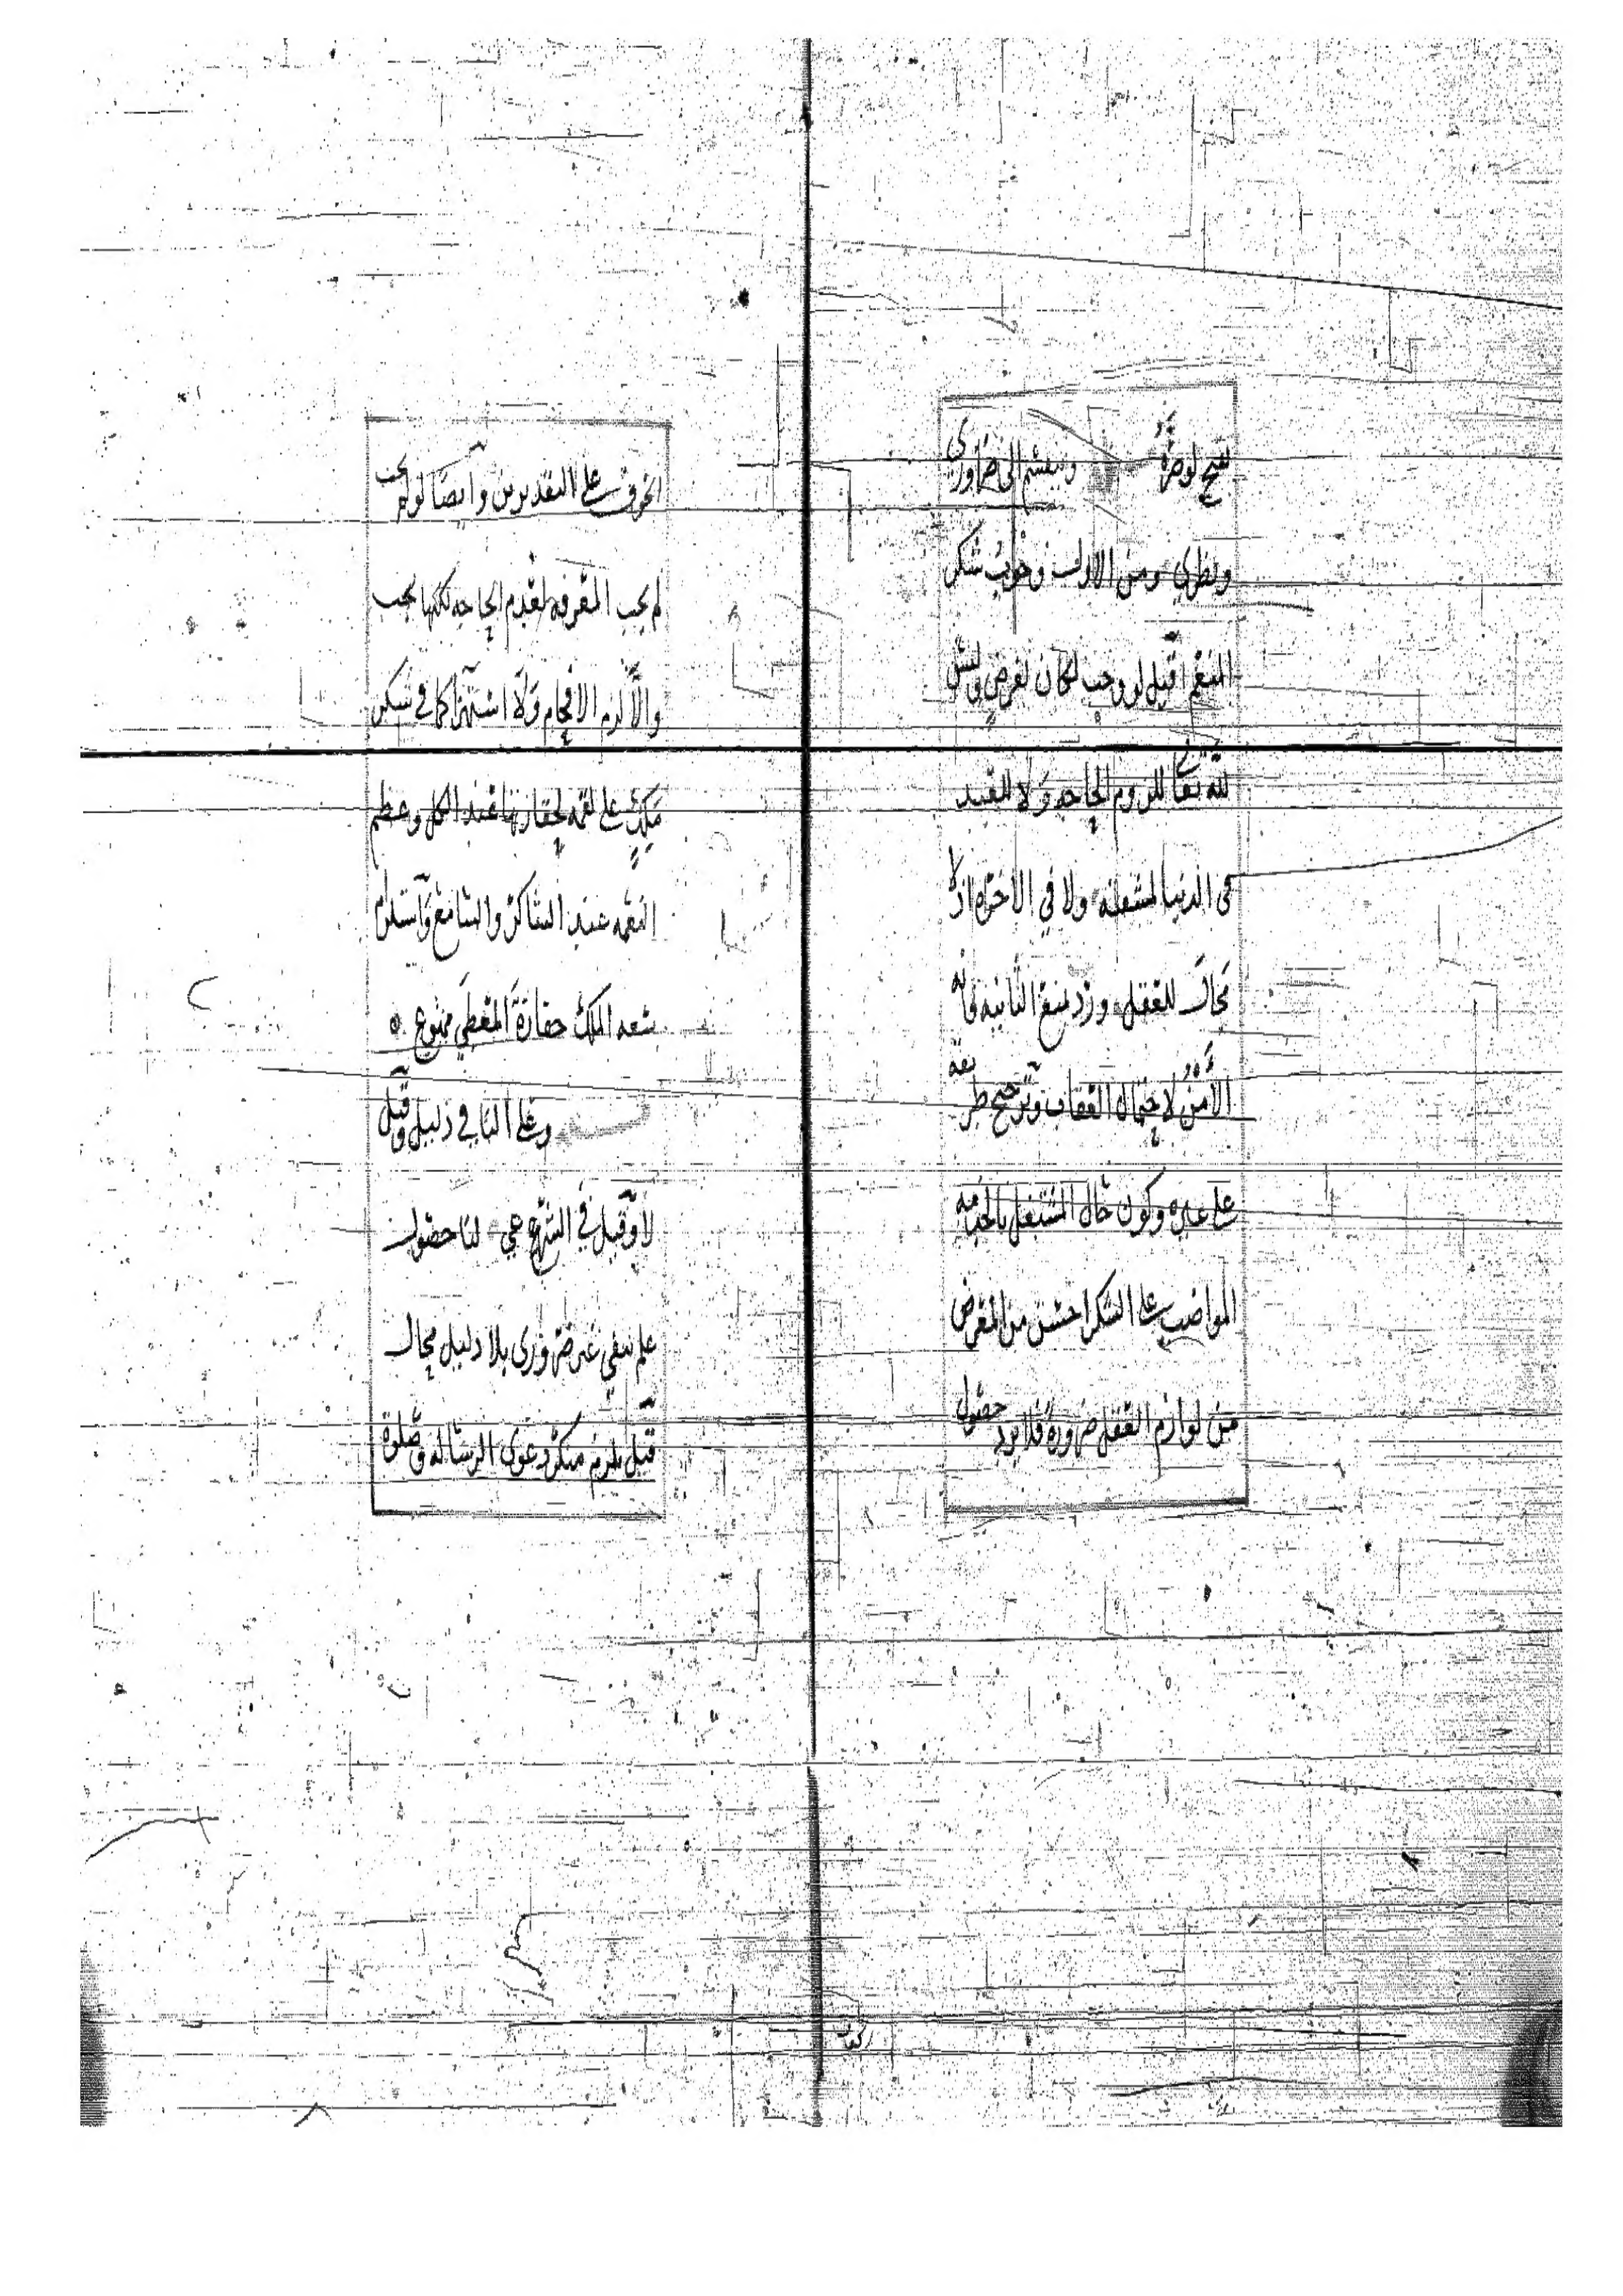 وينقسم إلى ضروري
ونظري ومن الاول وجوب شكر
المنعم قيل لو وجب لكان لغرض وليس
لله تعا للزوم الحاجه ولا للعبد
في الدنيا لمشقته ولا في الاخره اذ لا
مجال للعقل ورد بمنع الثانيه فانه
الأمن لاحتمال العقاب وترجيح طر
على غيره وكون حال المشتغل بالخدمه
المواضب على الشكر احسن من المعرض
من لوازم العقل ضرورة فلا يرد حصول
الخوف على التقديرين وأيضا لو لم يجب
لم يجب المعرفه لعدم الحاجه لكنها يجب
والّا لزم الافحام ولا استهزا كما في شكر
ملك على لقمه لحقارتها عند الكل وعظم
النعمه عند الشاكر والسامع واستلزام
سعه الملك حقارة المعطى ممنوع
وعلى النافي دليل وقيل
لا وقيل في الشرعي لنا حصول
علم بنفي غير ضروري بلا دليل محال
قيل يلزم منكر دعوى الرساله وصلوة